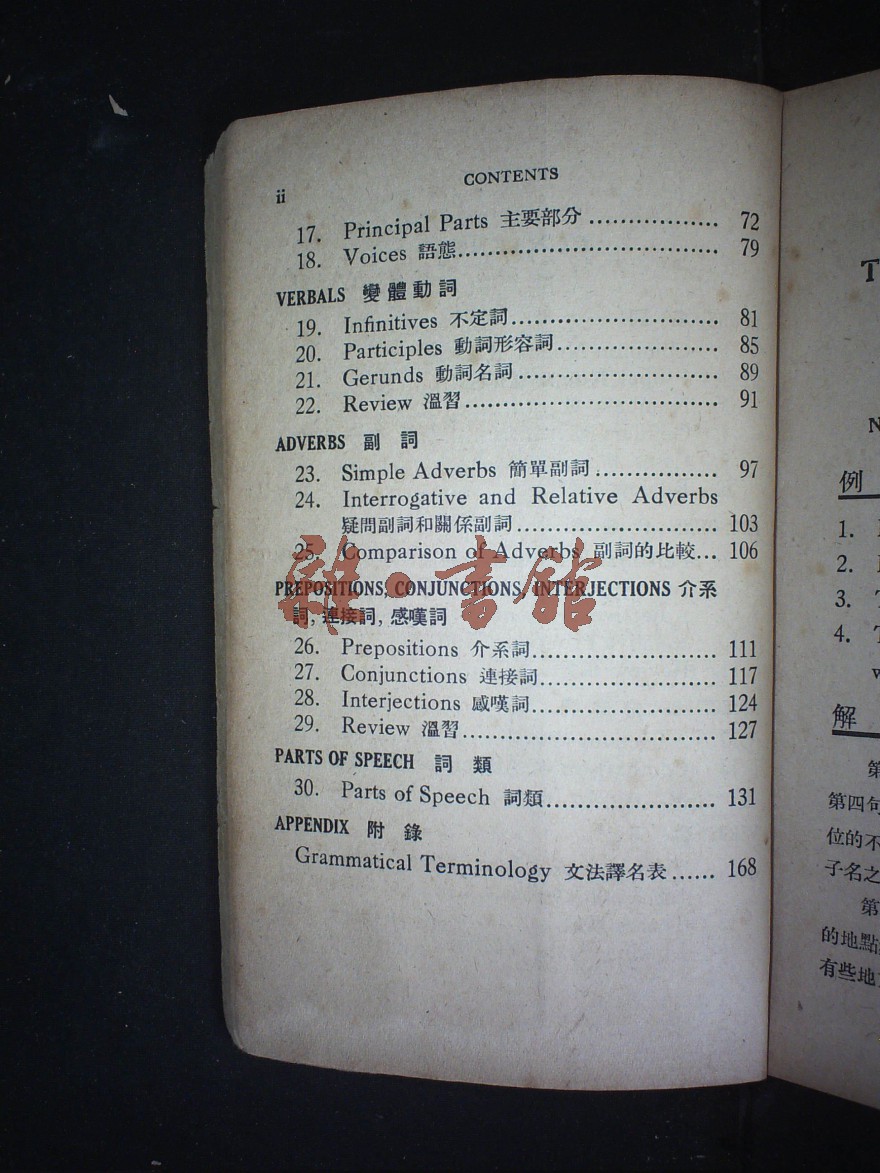 ii
CONTENTS
17. Principal Parts 主要部分 .................. 72
18. Voices 語態.................................. 79
VERBALS 變體動詞
19. Infinitives 不定詞............................ 81
20. Participles 動詞形容詞...................... 85
21. Gerunds 動詞名詞........................... 89
22. Review 溫習................................. 91
ADVERBS 副 詞
23. Simple Adverbs 簡單副詞 ................ 97
24. Interrogative and Relative Adverbs
疑問副詞和關係副詞.......................... 103
25. Comparison of Adverbs 副詞的比較... 106
PREPOSITIONS, CONJUNCTIONS, INTERJECTIONS 介系
詞, 連接詞, 感嘆詞
26. Prepositions 介系詞........................ 111
27. Conjunctions 連接詞....................... 117
28. Interjections 感嘆詞........................ 124
29. Review 溫習................................. 127
PARTS OF SPEECH 詞 類
30. Parts of Speech 詞類...................... 131
APPENDIX 附 錄
Grammatical Terminology 文法譯名表...... 168
書館
T
N
例
1.
2.
3. T
4. T
w
解
第
第四句
位的不
子名之
第
的地點
有些地